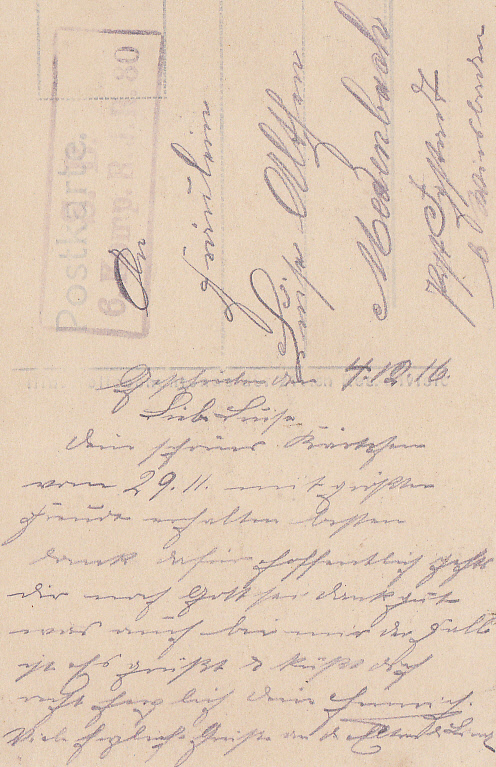 Postkarte.
6. Komp. R. I. R. 80
An
Fräulein
Luise Althen
Medenbach
Post Igstadt
b Wiesbaden
Geschrieben den 4.12.16.
Liebe Luise.
Dein schönes Kärtchen
vom 29.11. mit größter
Freude erhalten besten
dank dafür hoffentlich gehts
dir noch Gott sei dank gut
was auch bei mir der Fall
ist Es grüßt & küßt dich
recht herzlich dein Heinrich.
Viele herzliche Grüße an die Eltern &